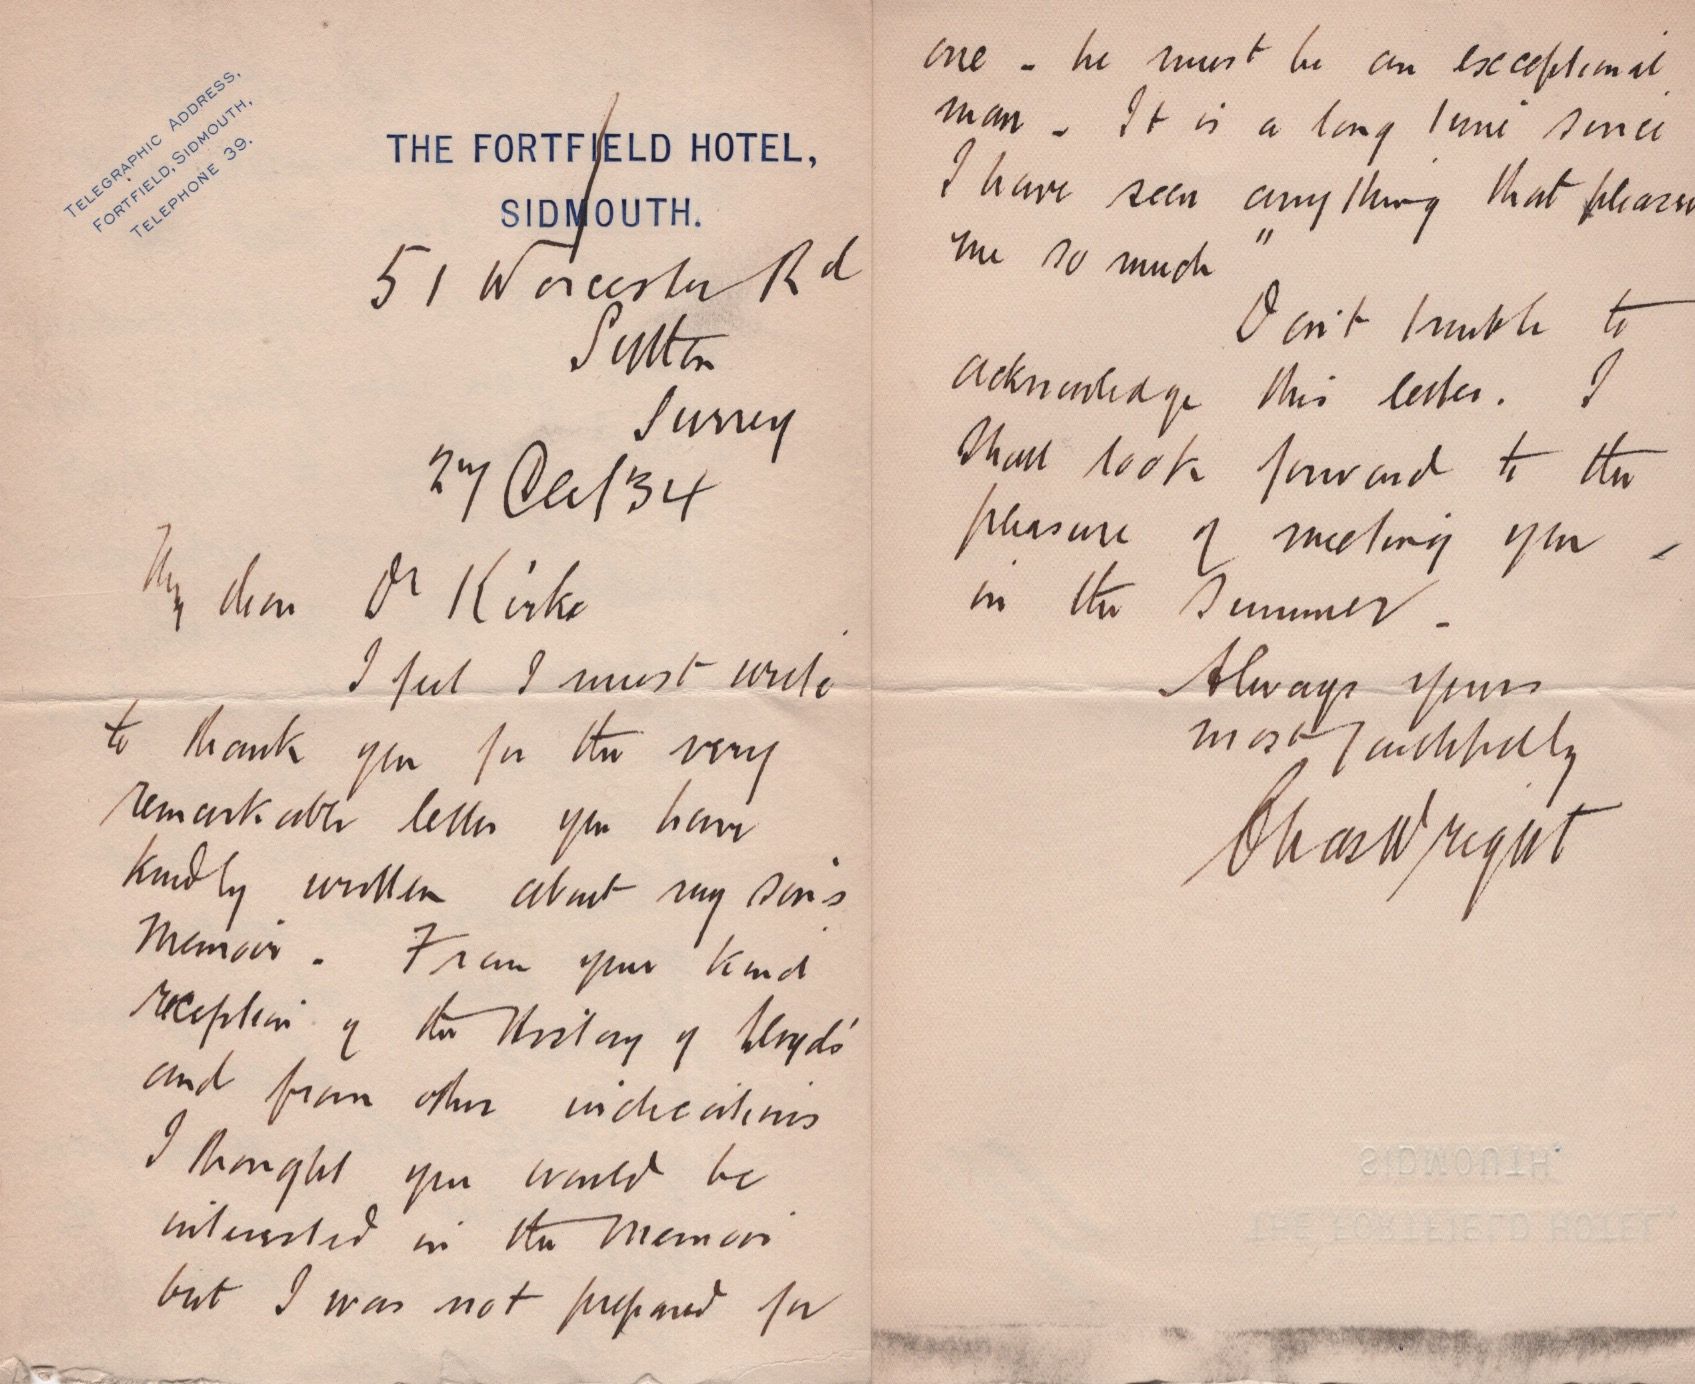 TELEGRAPHIC ADDRESS,
FORTFIELD, SIDMOUTH,
TELEPHONE 39.
THE FORTFIELD HOTEL,
SIDMOUTH.
51 Worcester Rd
Sutton
Surrey
27 Oct '34
My dear Dr Kirke
I feel I must write
to thank you for the very
remarkable letter you have
kindly written about my son's
Memoir. From your kind
reception of the History of Lloyd's
and from other indications
I thought you would be
interested in the Memoir
but I was not prepared for
one - he must be an exceptional
man - It is a long time since
I have seen anything that pleased
me so much"
Don't trouble to
acknowledge this letter. I
shall look forward to the
pleasure of meeting you -
in the summer -
Always yours
most faithfully
Chas Wright
SIDMOUTH.
THE FORTFIELD HOTEL,